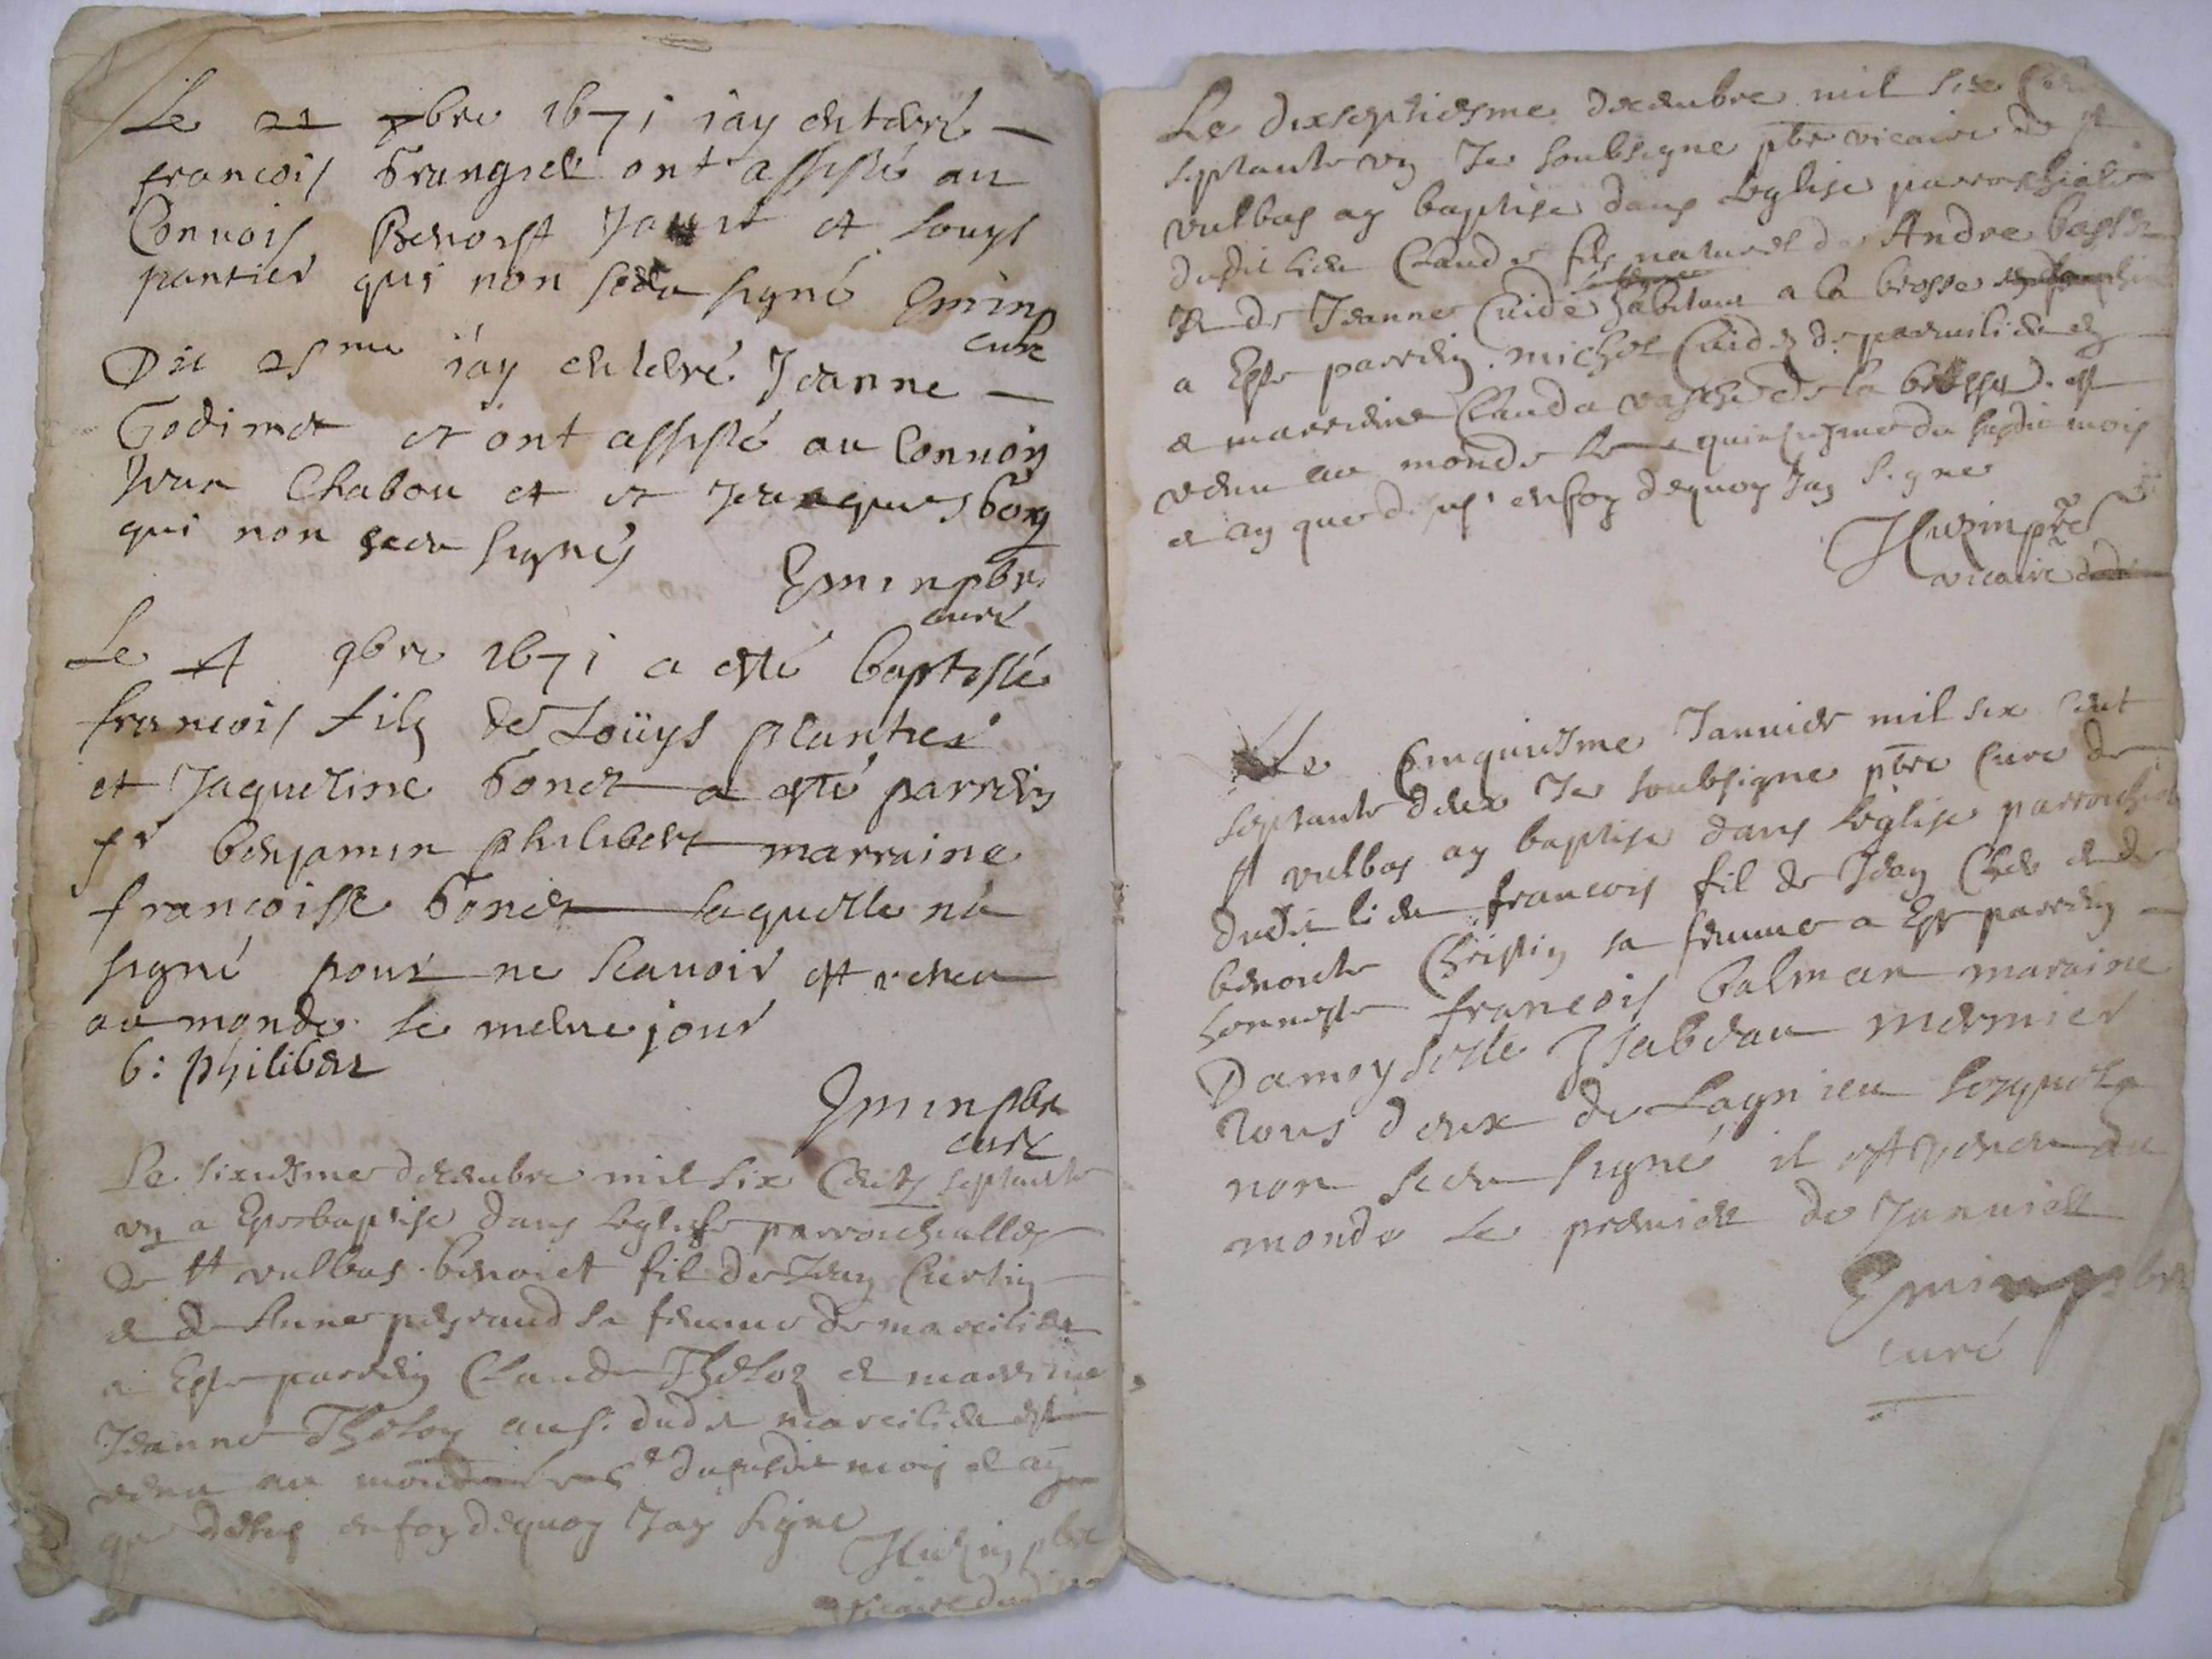 Le 21 xbre 1671 i'ay enterré
francois ont assisté au
Convois Benoist et Louys
pantier qui non sceu signé Emin
curé
Du 25me i'ay enterré Jeanne
Godimet et ont assisté au Convoy
Jean Chabou et et Jacques bony
qui non sceu signés
Emin pbre
curé
Le 4 9bre 1671 a esté baptissé
francois filz de Loüys plantier
et Jaqueline bonet a esté parrein
sr benjamin philibert marraine
francoisse bonet laquelle na
signé pour ne scauoir est veneu
au monde le mesme jour
b: philibert
Emin pbre
curé
Le sixiesme decembre mil six Cents septante
un a este baptise dans leglise parrochialle
de st vulbas benoict fil de Jean
et de Anne sa femme de marcilieu
a este parrein Claude Theloz et marreine
Jeanne Theloz aussi dudit marcilieu est
venu au monde du susdit mois et an
que dessus en foy dequoy Jay signe
pbre
vicaire dudit
Le dixseptiesme decembre mil sixe Cent
septante un Je soubsigne pbre vicaire de st
vulbas ay baptise dans leglise parrochialle
dudit lieu Claude fils naturel de Andre
et de Jeanne Cuidé habitant a la brosse
a este parrein michel de marcilieu et
et marreine Clauda de la brosse est
venu au monde le quinsiesme du susdit mois
et an que dessus en foy dequoy Jay signe
pbre
vicaire dudit
Le Cinquiesme Januier mil six cent
septante deux Je soubsigne pbre Cure de
st vulbas ay baptise dans leglise parrochialle
dudit lieu francois fil de Jean et de
benoicte Christin sa femme a este parrein
honneste francois balman maraine
Damoyselle Isabeau mermier
tous deux de Lagnieu lesquels
non sceu signé il est veneu au
monde le premier de Januier
Emin pbre
curé